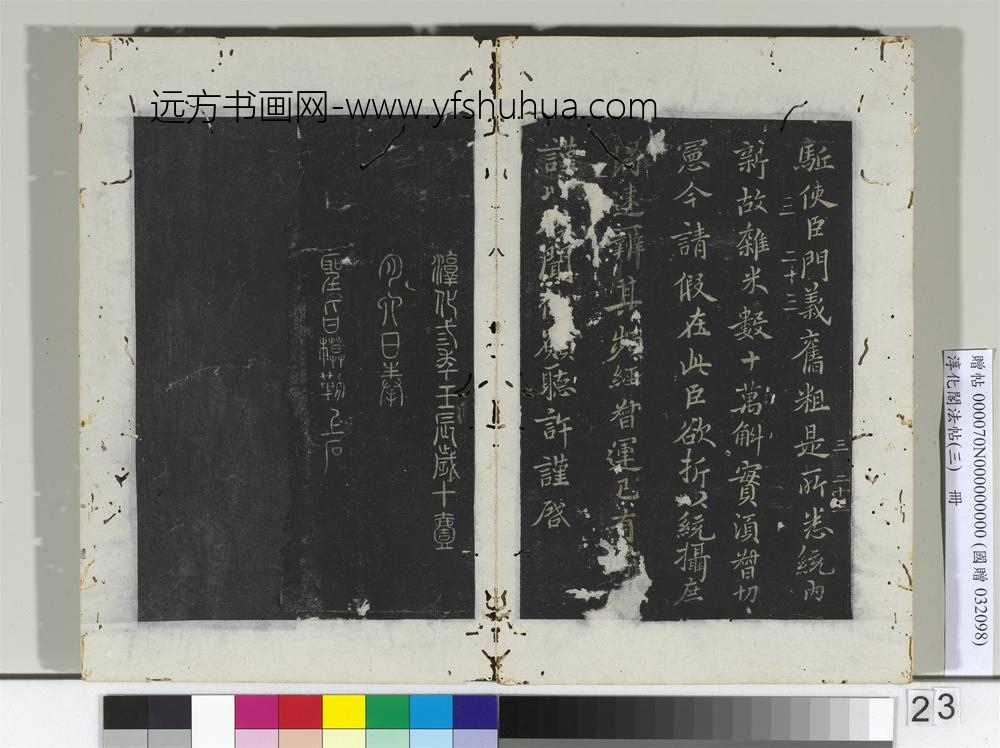 远方书画网-www.yfshuhua.com
駈使臣門義舊粗是所悉統內
三 二十三
新故雜米數十萬斛實湏督切
三 二十三
憲今請假在此臣欲折以統攝庶
為速辦其
經督運已有
謹以
聞
聽許謹啓
淳化三年壬辰歲十壹
月六日奉
聖旨模勒上石
贈帖 000070N000000000 (國贈 032098)
淳化閣法帖(三) 冊
23